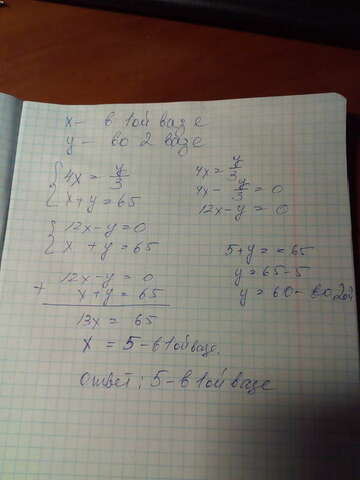 x - в 1ой вазе
y - во 2 вазе
{ 4x = y/3
x + y = 65
4x = y/3
4x - y/3 = 0
12x - y = 0
{ 12x - y = 0
x + y = 65
5 + y = = 65
y = 65 - 5
y = 60 - во 2ой
12x - y = 0
+ x + y = 65
13x = 65
x = 5 - в 1ой вазе.
Ответ: 5 - в 1ой вазе